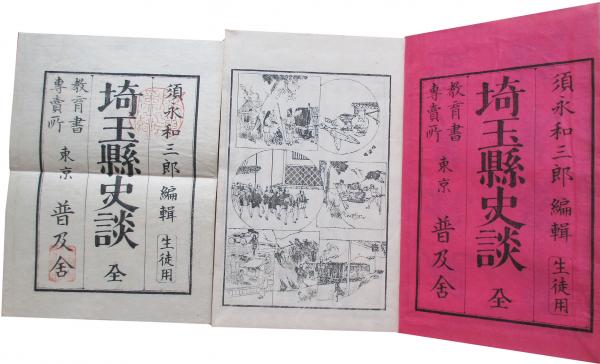 須永和三郎 編輯 生徒用
埼玉縣史談 全
教育書
專賣所
東京 普及舍
須永和三郎 編輯 生徒用
埼玉縣史談 全
教育書
專賣所
東京 普及舍